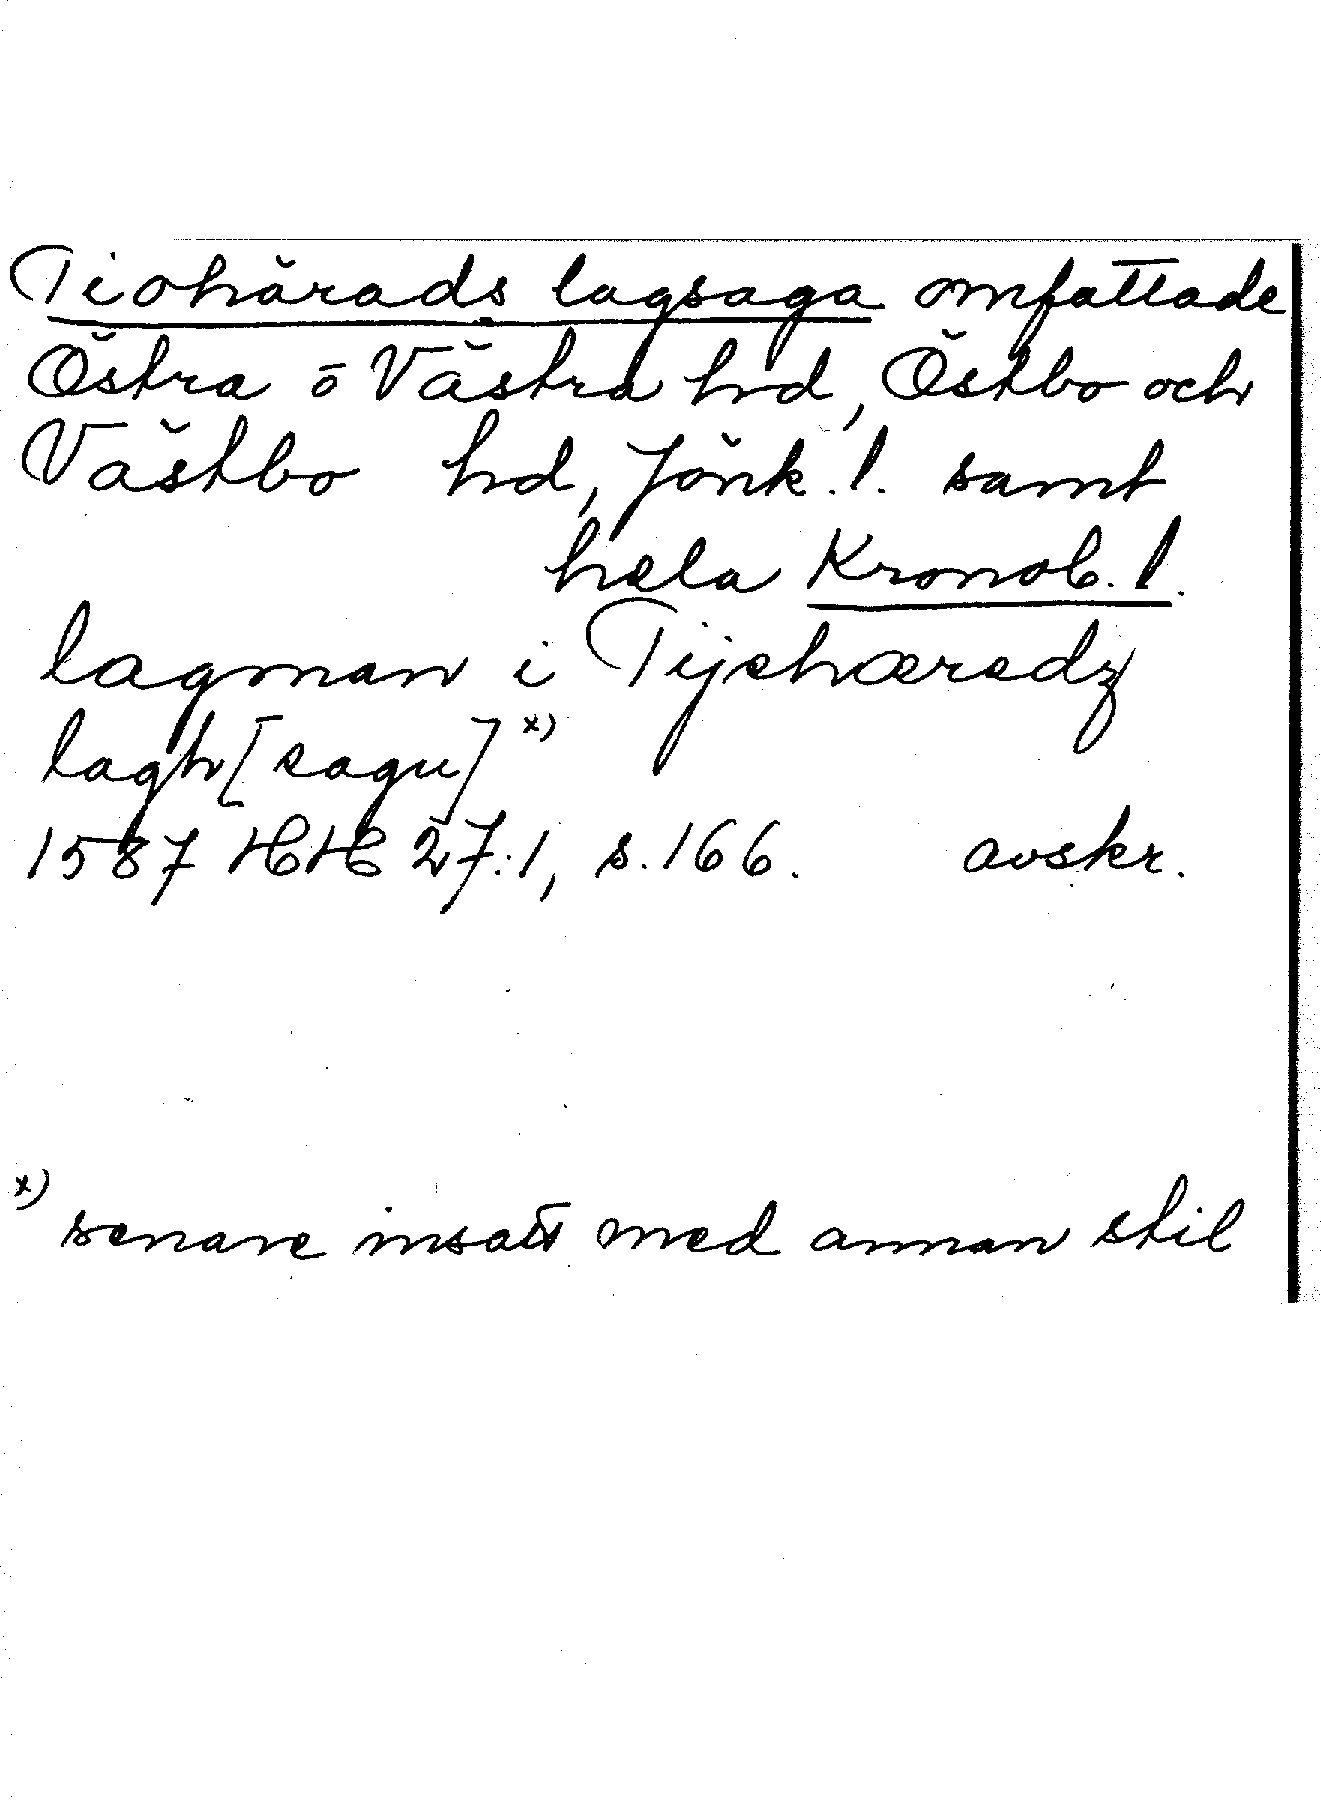 Tiohärads lagsaga omfattade
Östra o Västra hrd, Östbo och
Västbo hrd, Jönk. l. samt
hela Kronob. l.
lagman i Tijehæredz
lagh[sagu] x)
1587 HH 27:1, s. 166. avskr.
x) senare insatt med annan stil